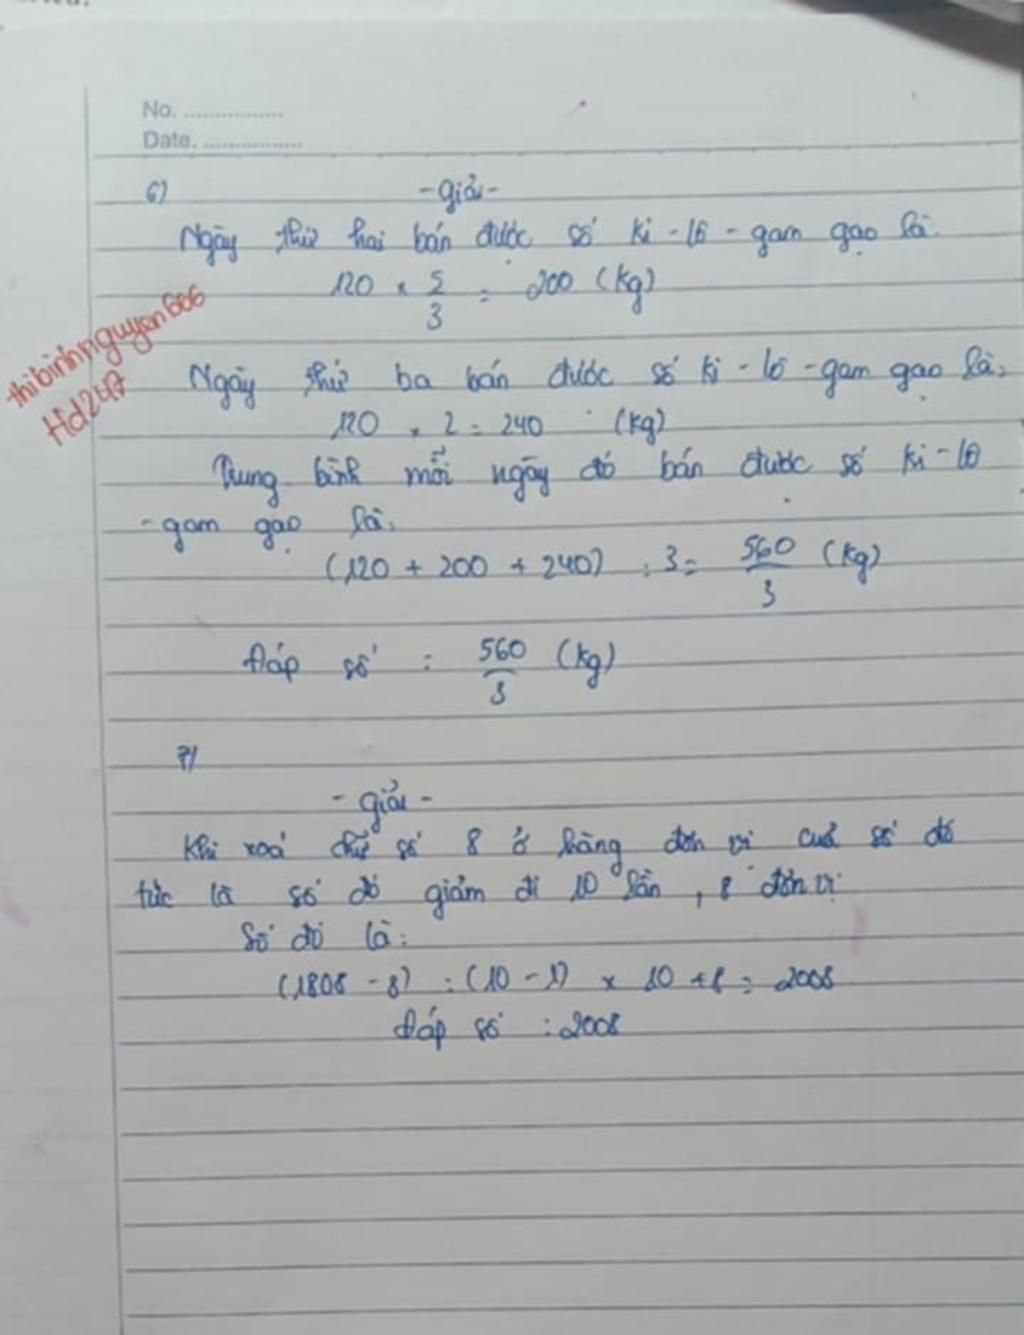 No. ................
Date. ................
6)
- giải -
Ngày thứ hai bán được số ki - lô - gam gạo là:
120 × 5/3 = 200 (kg)
thibinhnguyen606
Hd247
Ngày thứ ba bán được số ki - lô - gam gạo là:
120 × 2 = 240 (kg)
Trung bình mỗi ngày đó bán được số ki - lô
- gam gạo là:
(120 + 200 + 240) : 3 = 560/3 (kg)
Đáp số : 560/3 (kg)
7/
- giải -
Khi xoá chữ số 8 ở hàng đơn vị của số đó
tức là số đó giảm đi 10 lần , 8 đơn vị
Số đó là:
(1808 - 8) : (10 - 1) × 10 + 8 = 2008
Đáp số : 2008